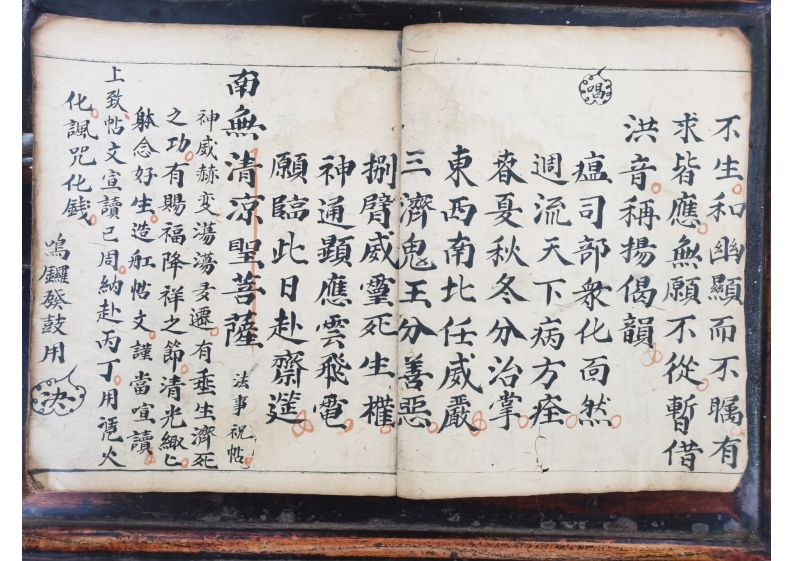 不生和幽顯而不瞩有
求皆應無願不從暫借
洪音稱揚偈韻
唱
瘟司部衆化靣然
週流天下病方痊
春夏秋冬分治掌
東西南北任威嚴
三濟鬼王分善惡
捌臂威靈死生權
神通顯應雲飛電
願臨此日赴齋筵
南無清凉聖菩薩
法事祝帖
神威赫变蕩蕩遷有垂生濟死
之功有賜福降祥之節清光
躰念好生造舡帖文謹當宣讀
上致帖文宣讀已周納赴丙丁用火
化諷咒化錢
鳴鑼發鼓用
決